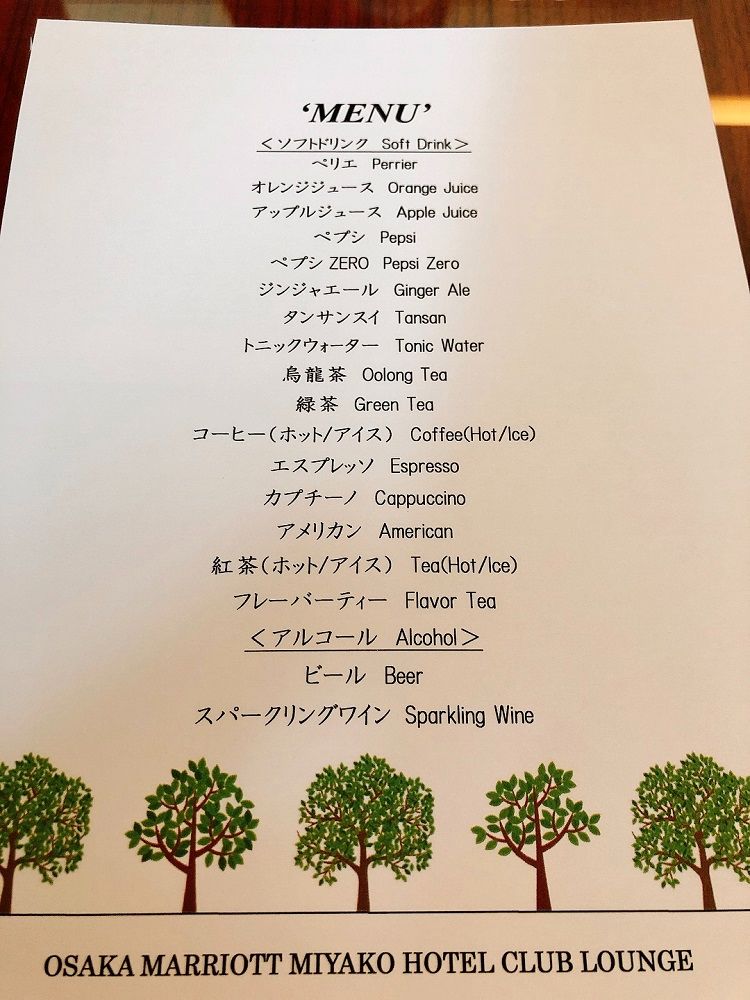 ‘MENU’
＜ソフトドリンク　Soft Drink＞
ペリエ　Perrier
オレンジジュース　Orange Juice
アップルジュース　Apple Juice
ペプシ　Pepsi
ペプシ ZERO　Pepsi Zero
ジンジャエール　Ginger Ale
タンサンスイ　Tansan
トニックウォーター　Tonic Water
烏龍茶　Oolong Tea
緑茶　Green Tea
コーヒー（ホット/アイス）　Coffee(Hot/Ice)
エスプレッソ　Espresso
カプチーノ　Cappuccino
アメリカン　American
紅茶（ホット/アイス）　Tea(Hot/Ice)
フレーバーティー　Flavor Tea
＜アルコール　Alcohol＞
ビール　Beer
スパークリングワイン　Sparkling Wine
OSAKA MARRIOTT MIYAKO HOTEL CLUB LOUNGE